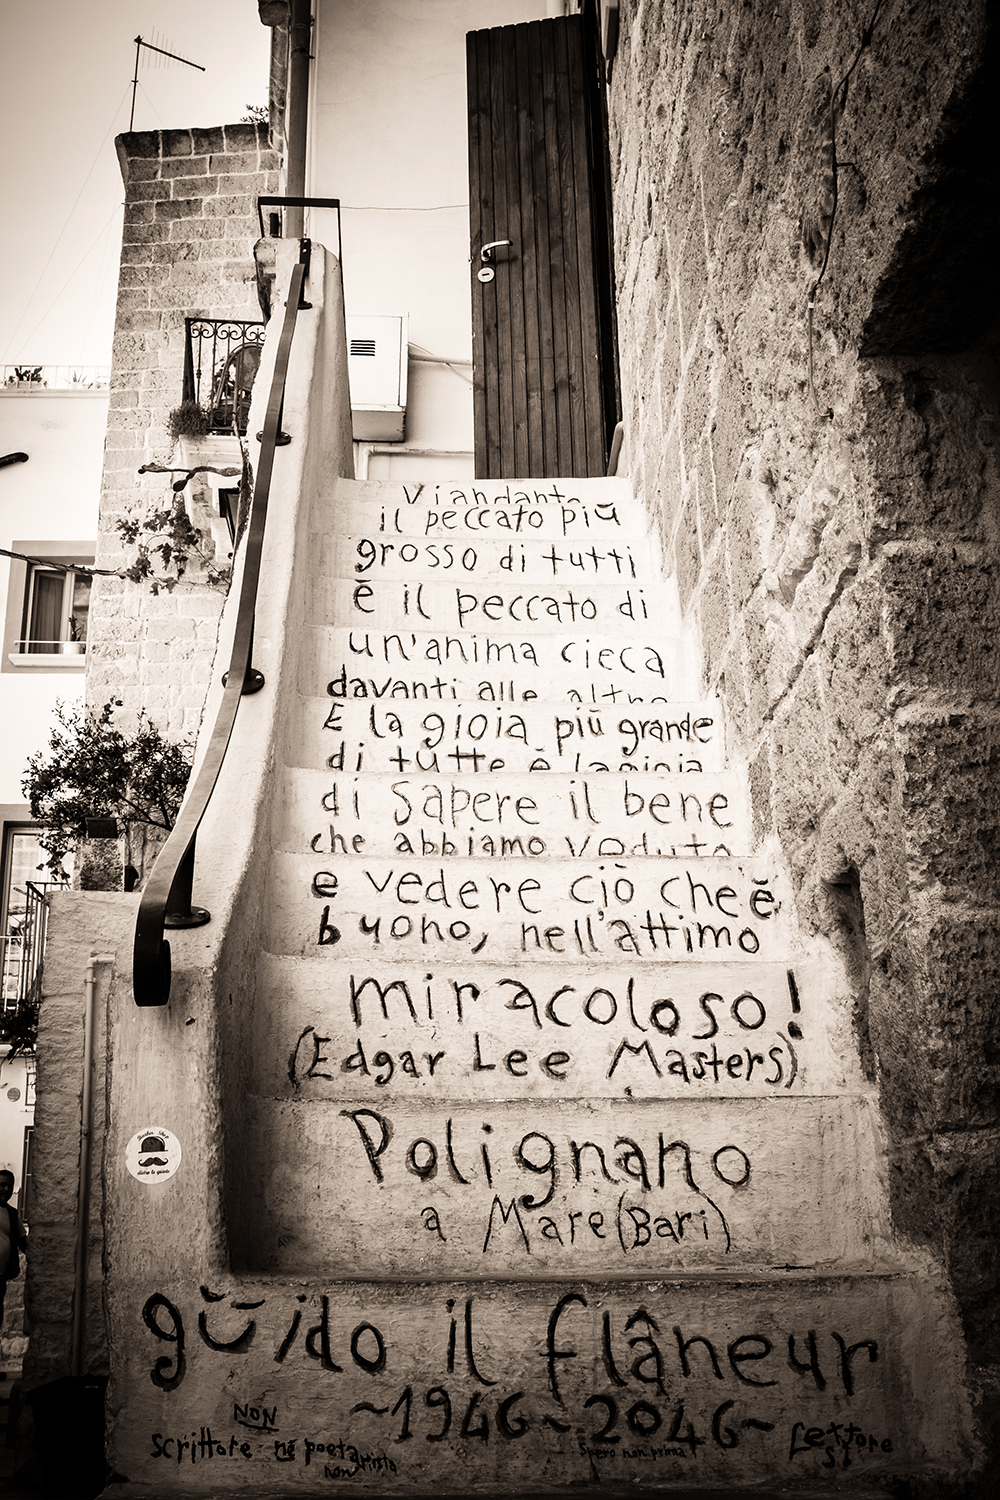 Viandante
il peccato più
grosso di tutti
è il peccato di
un'anima cieca
davanti alle altre
E la gioia più grande
di tutte è la gioia
di sapere il bene
che abbiamo veduto
e vedere ciò che è
buono, nell'attimo
miracoloso!
(Edgar Lee Masters)
Polignano
a Mare (Bari)
guido il flâneur
~1946~2046~
NON
scrittore nè poeta
non artista
Spero non prima
Lettore
sì
Barber Shop
dietro le quinte